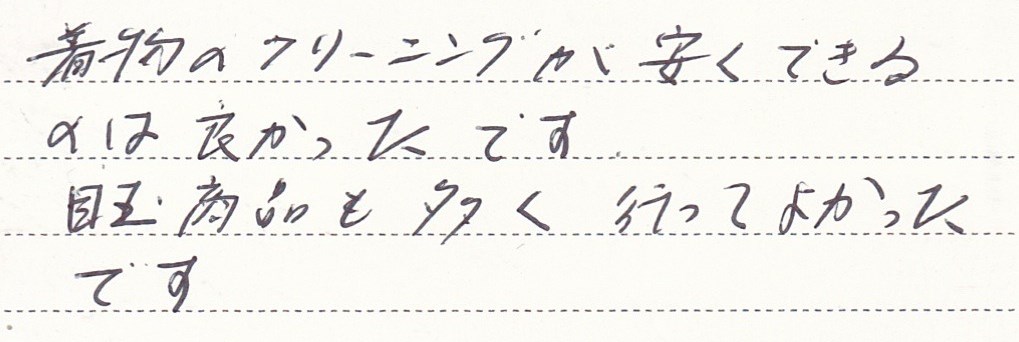 着物のクリーニングが安くできる
のは良かったです
目玉商品も多く行ってよかった
です